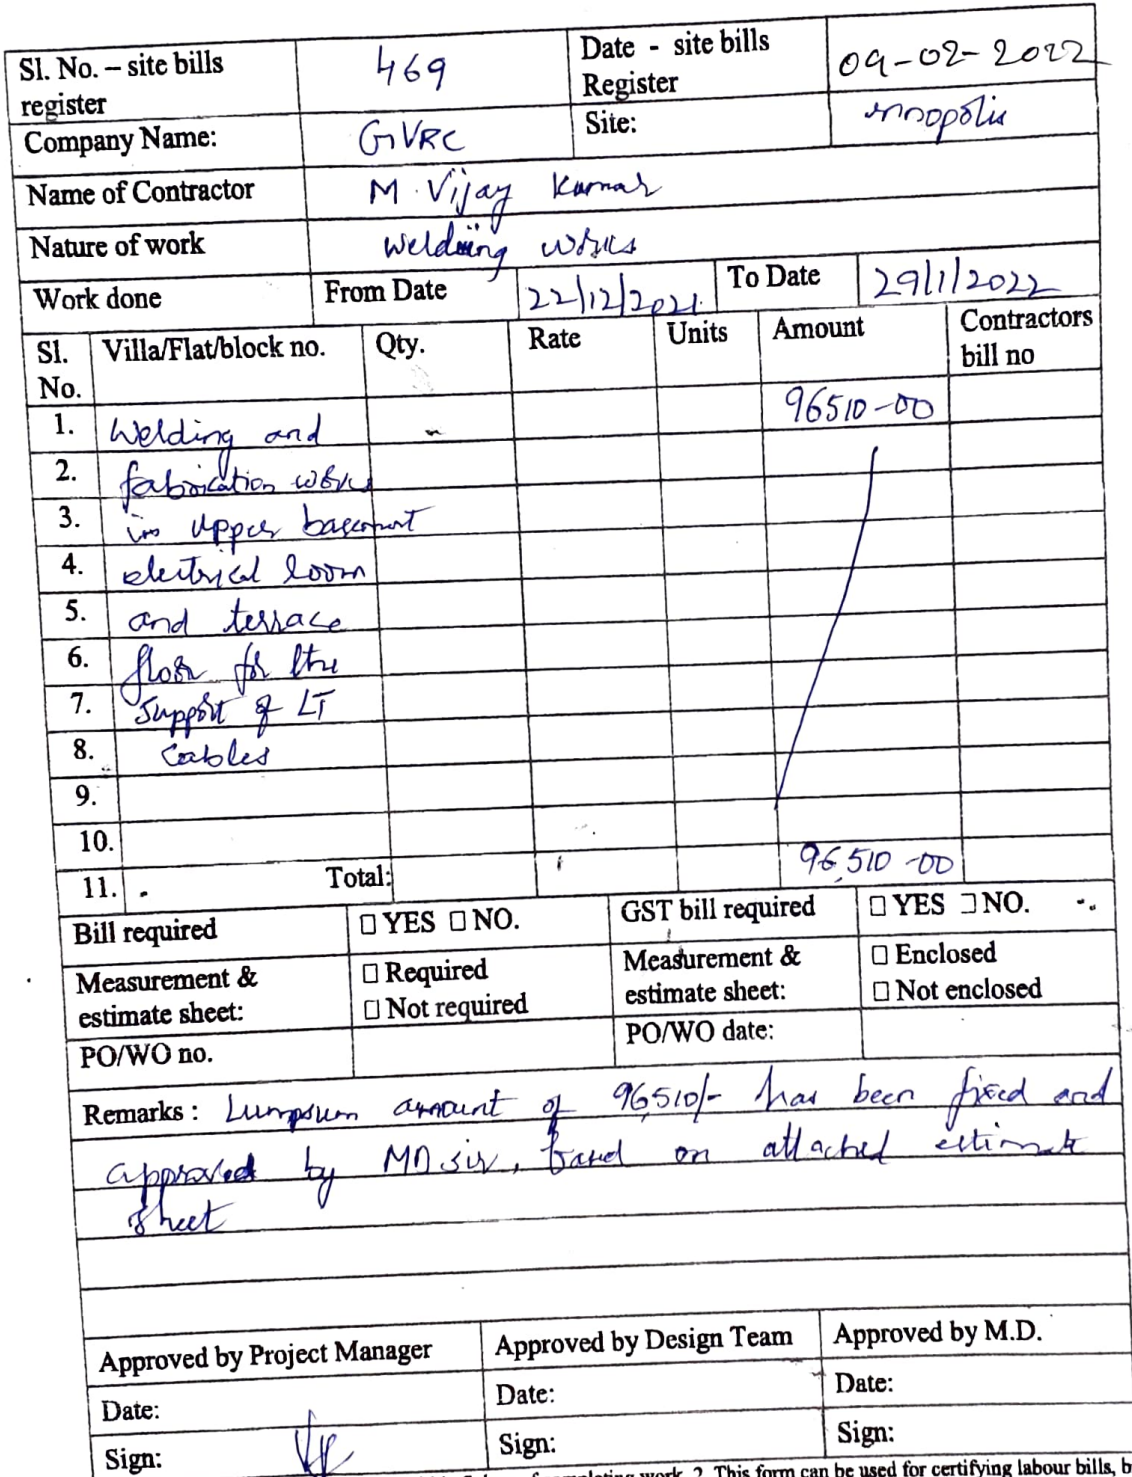 Sl. No. – site bills register 469 Date - site bills Register 09-02-2022
Company Name: GVRC Site: innopolis
Name of Contractor M. Vijay Kumar
Nature of work Welding works
Work done From Date 22/12/2021 To Date 29/1/2022
Sl. No. Villa/Flat/block no. Qty. Rate Units Amount Contractors bill no
1. Welding and 96510-00
2. fabrication works
3. in upper basement
4. electrical room
5. and terrace
6. floor for the
7. support of LT
8. Cables
9.
10.
11. Total: 96,510-00
Bill required ☐ YES ☐ NO. GST bill required ☐ YES ☐ NO.
Measurement & estimate sheet: ☐ Required ☐ Not required Measurement & estimate sheet: ☐ Enclosed ☐ Not enclosed
PO/WO no. PO/WO date:
Remarks : Lumpsum amount of 96,510/- has been fixed and
approved by MD sir, based on attached estimate
sheet
Approved by Project Manager Approved by Design Team Approved by M.D.
Date: Date: Date:
Sign: Sign: Sign:
work. 2. This form can be used for certifying labour bills, b